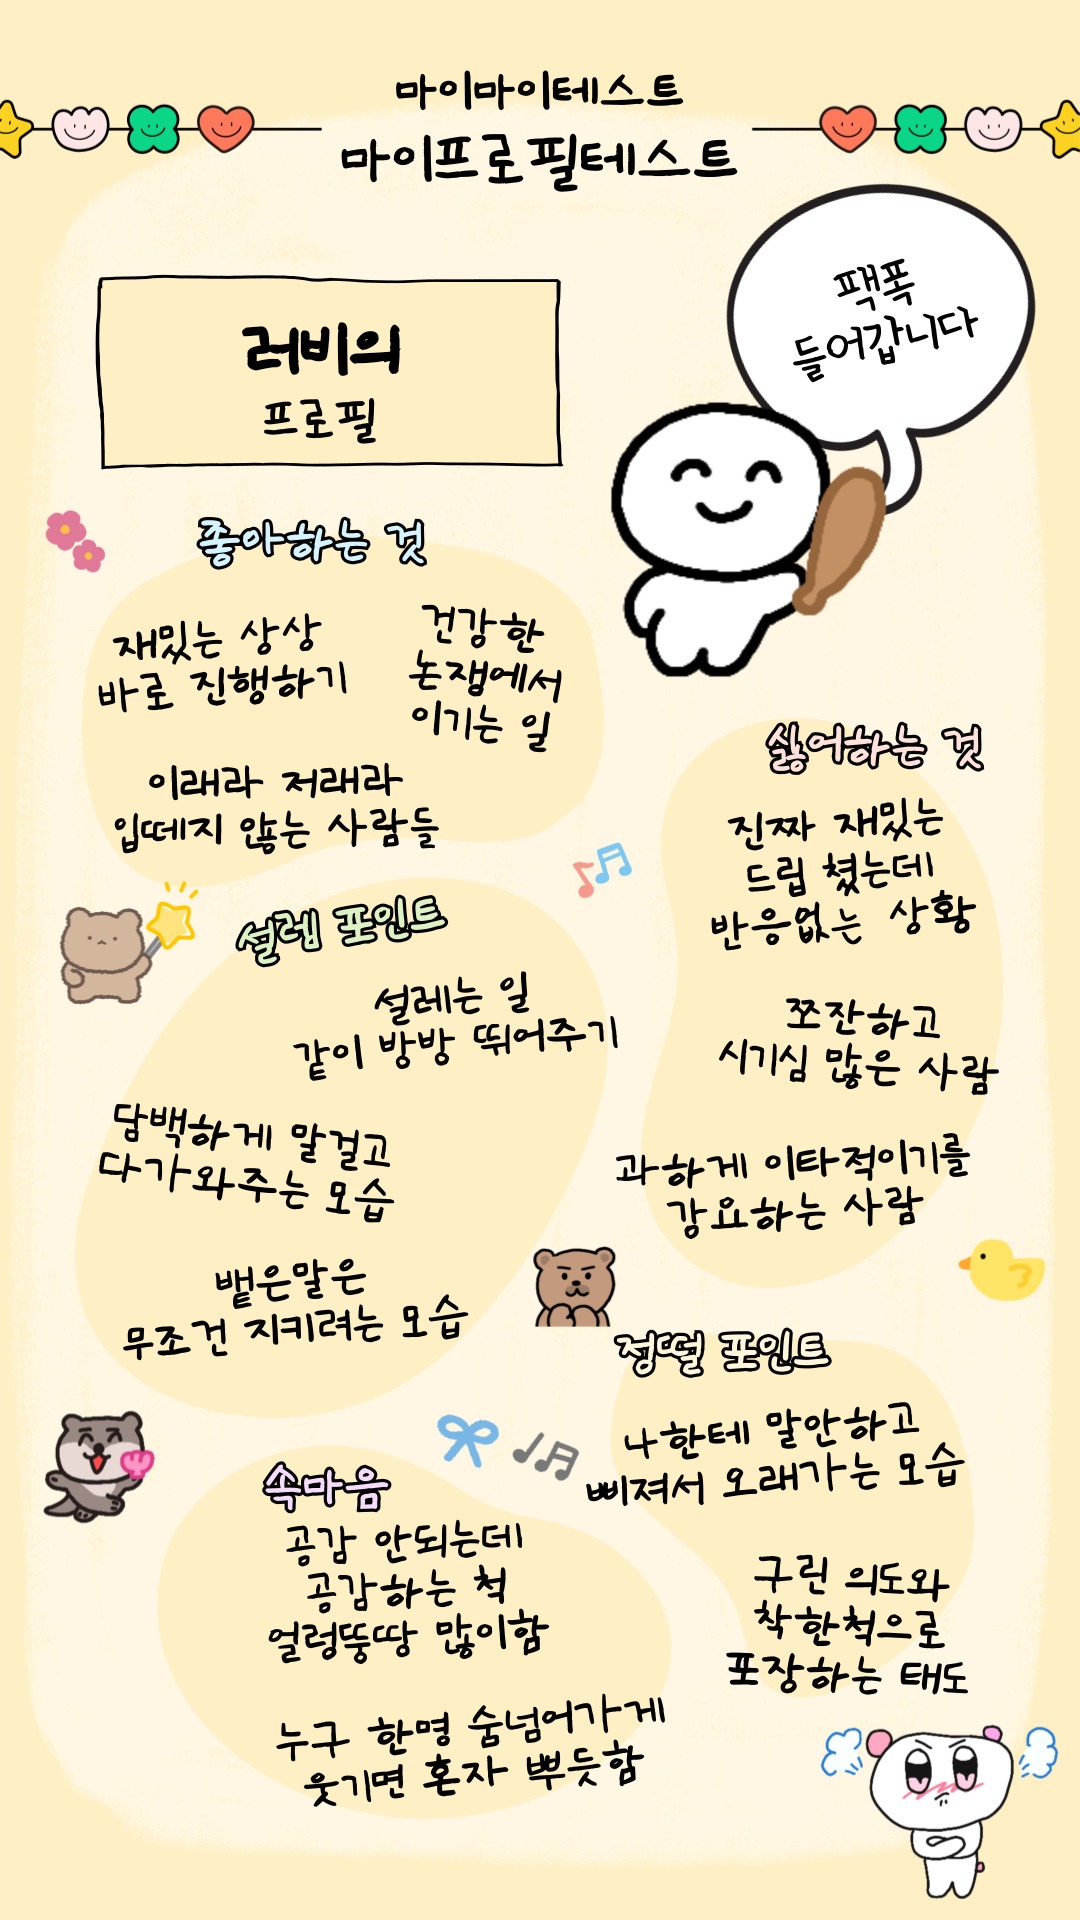 마이마이테스트
마이프로필테스트
팩폭
들어갑니다
러비의
프로필
좋아하는 것
재밌는 상상
바로 진행하기
건강한
논쟁에서
이기는 일
이래라 저래라
입떼지 않는 사람들
싫어하는 것
진짜 재밌는
드립 쳤는데
반응없는 상황
쪼잔하고
시기심 많은 사람
과하게 이타적이기를
강요하는 사람
설렘 포인트
설레는 일
같이 방방 뛰어주기
담백하게 말걸고
다가와주는 모습
뱉은말은
무조건 지키려는 모습
정떨 포인트
나한테 말안하고
삐져서 오래가는 모습
구린 의도와
착한척으로
포장하는 태도
속마음
공감 안되는데
공감하는 척
얼렁뚱땅 많이함
누구 한명 숨넘어가게
웃기면 혼자 뿌듯함